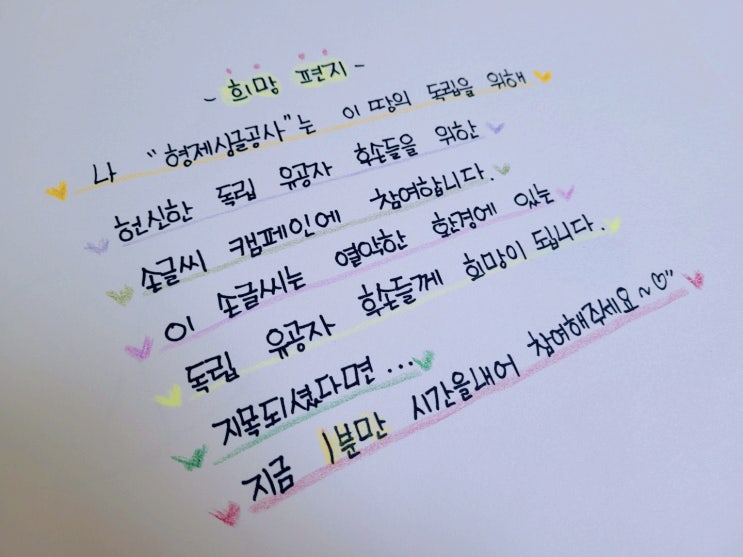 - 희망 편지 -
나 "형제싱글공사"는 이 땅의 독립을 위해
헌신한 독립 유공자 후손들을 위한
손글씨 캠페인에 참여합니다.
이 손글씨는 열악한 환경에 있는
독립 유공자 후손들께 희망이 됩니다.
지목되셨다면...
지금 1분만 시간을내어 참여해주세요~♡"